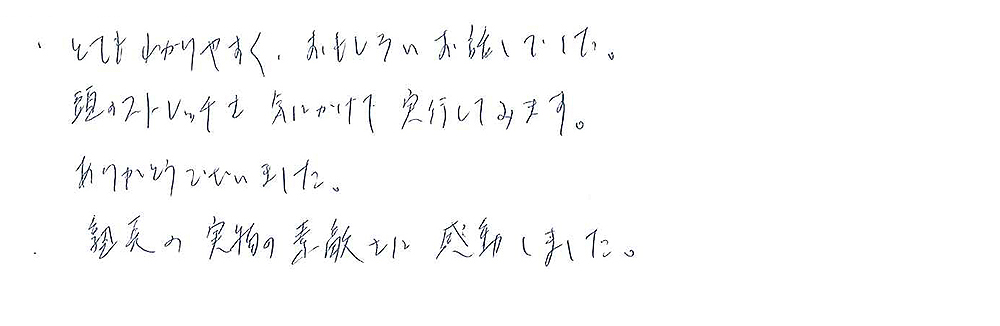 ・とてもわかりやすく、おもしろいお話しでした。
頭のストレッチも気にかけて実行してみます。
ありがとうございました。
・塾長の実物の素敵さに感動しました。